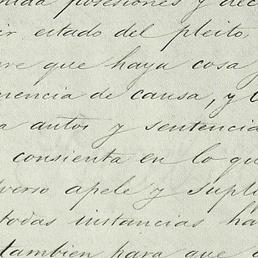 posesiones y dec
ir estado del pleito
que haya cosa
nencia de causa, y
a autos y sentencia
consienta en lo qu
verso apele y supli
todas instancias ha
tambien para que